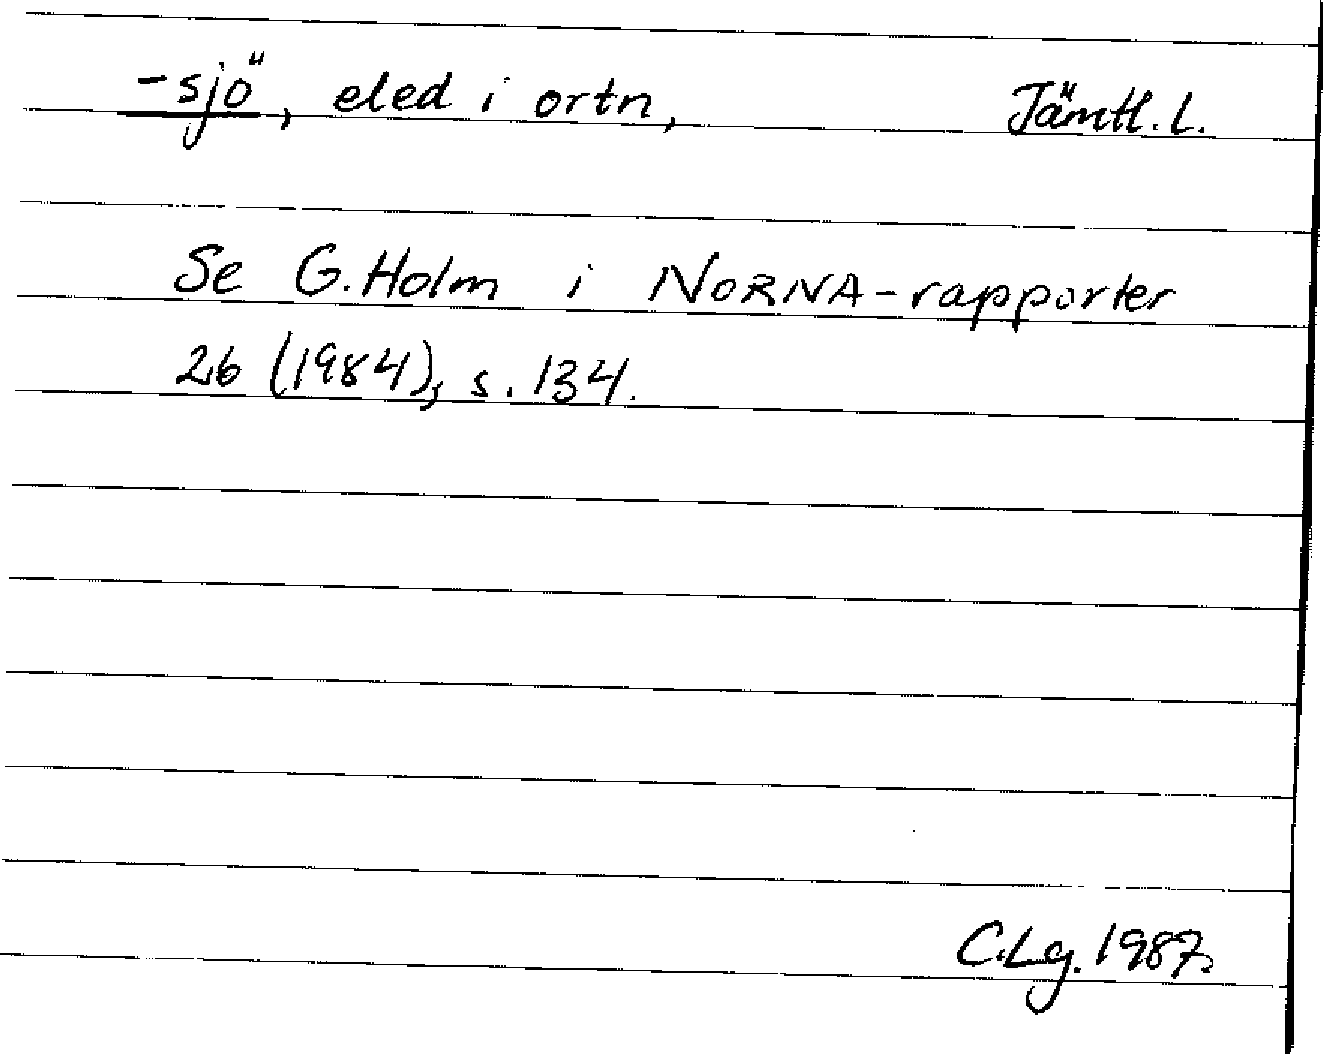 -sjö, eled i ortn, Jämtl. L.
Se G. Holm i NORNA-rapporter
26 (1984), s. 134.
C.Lg. 1987.